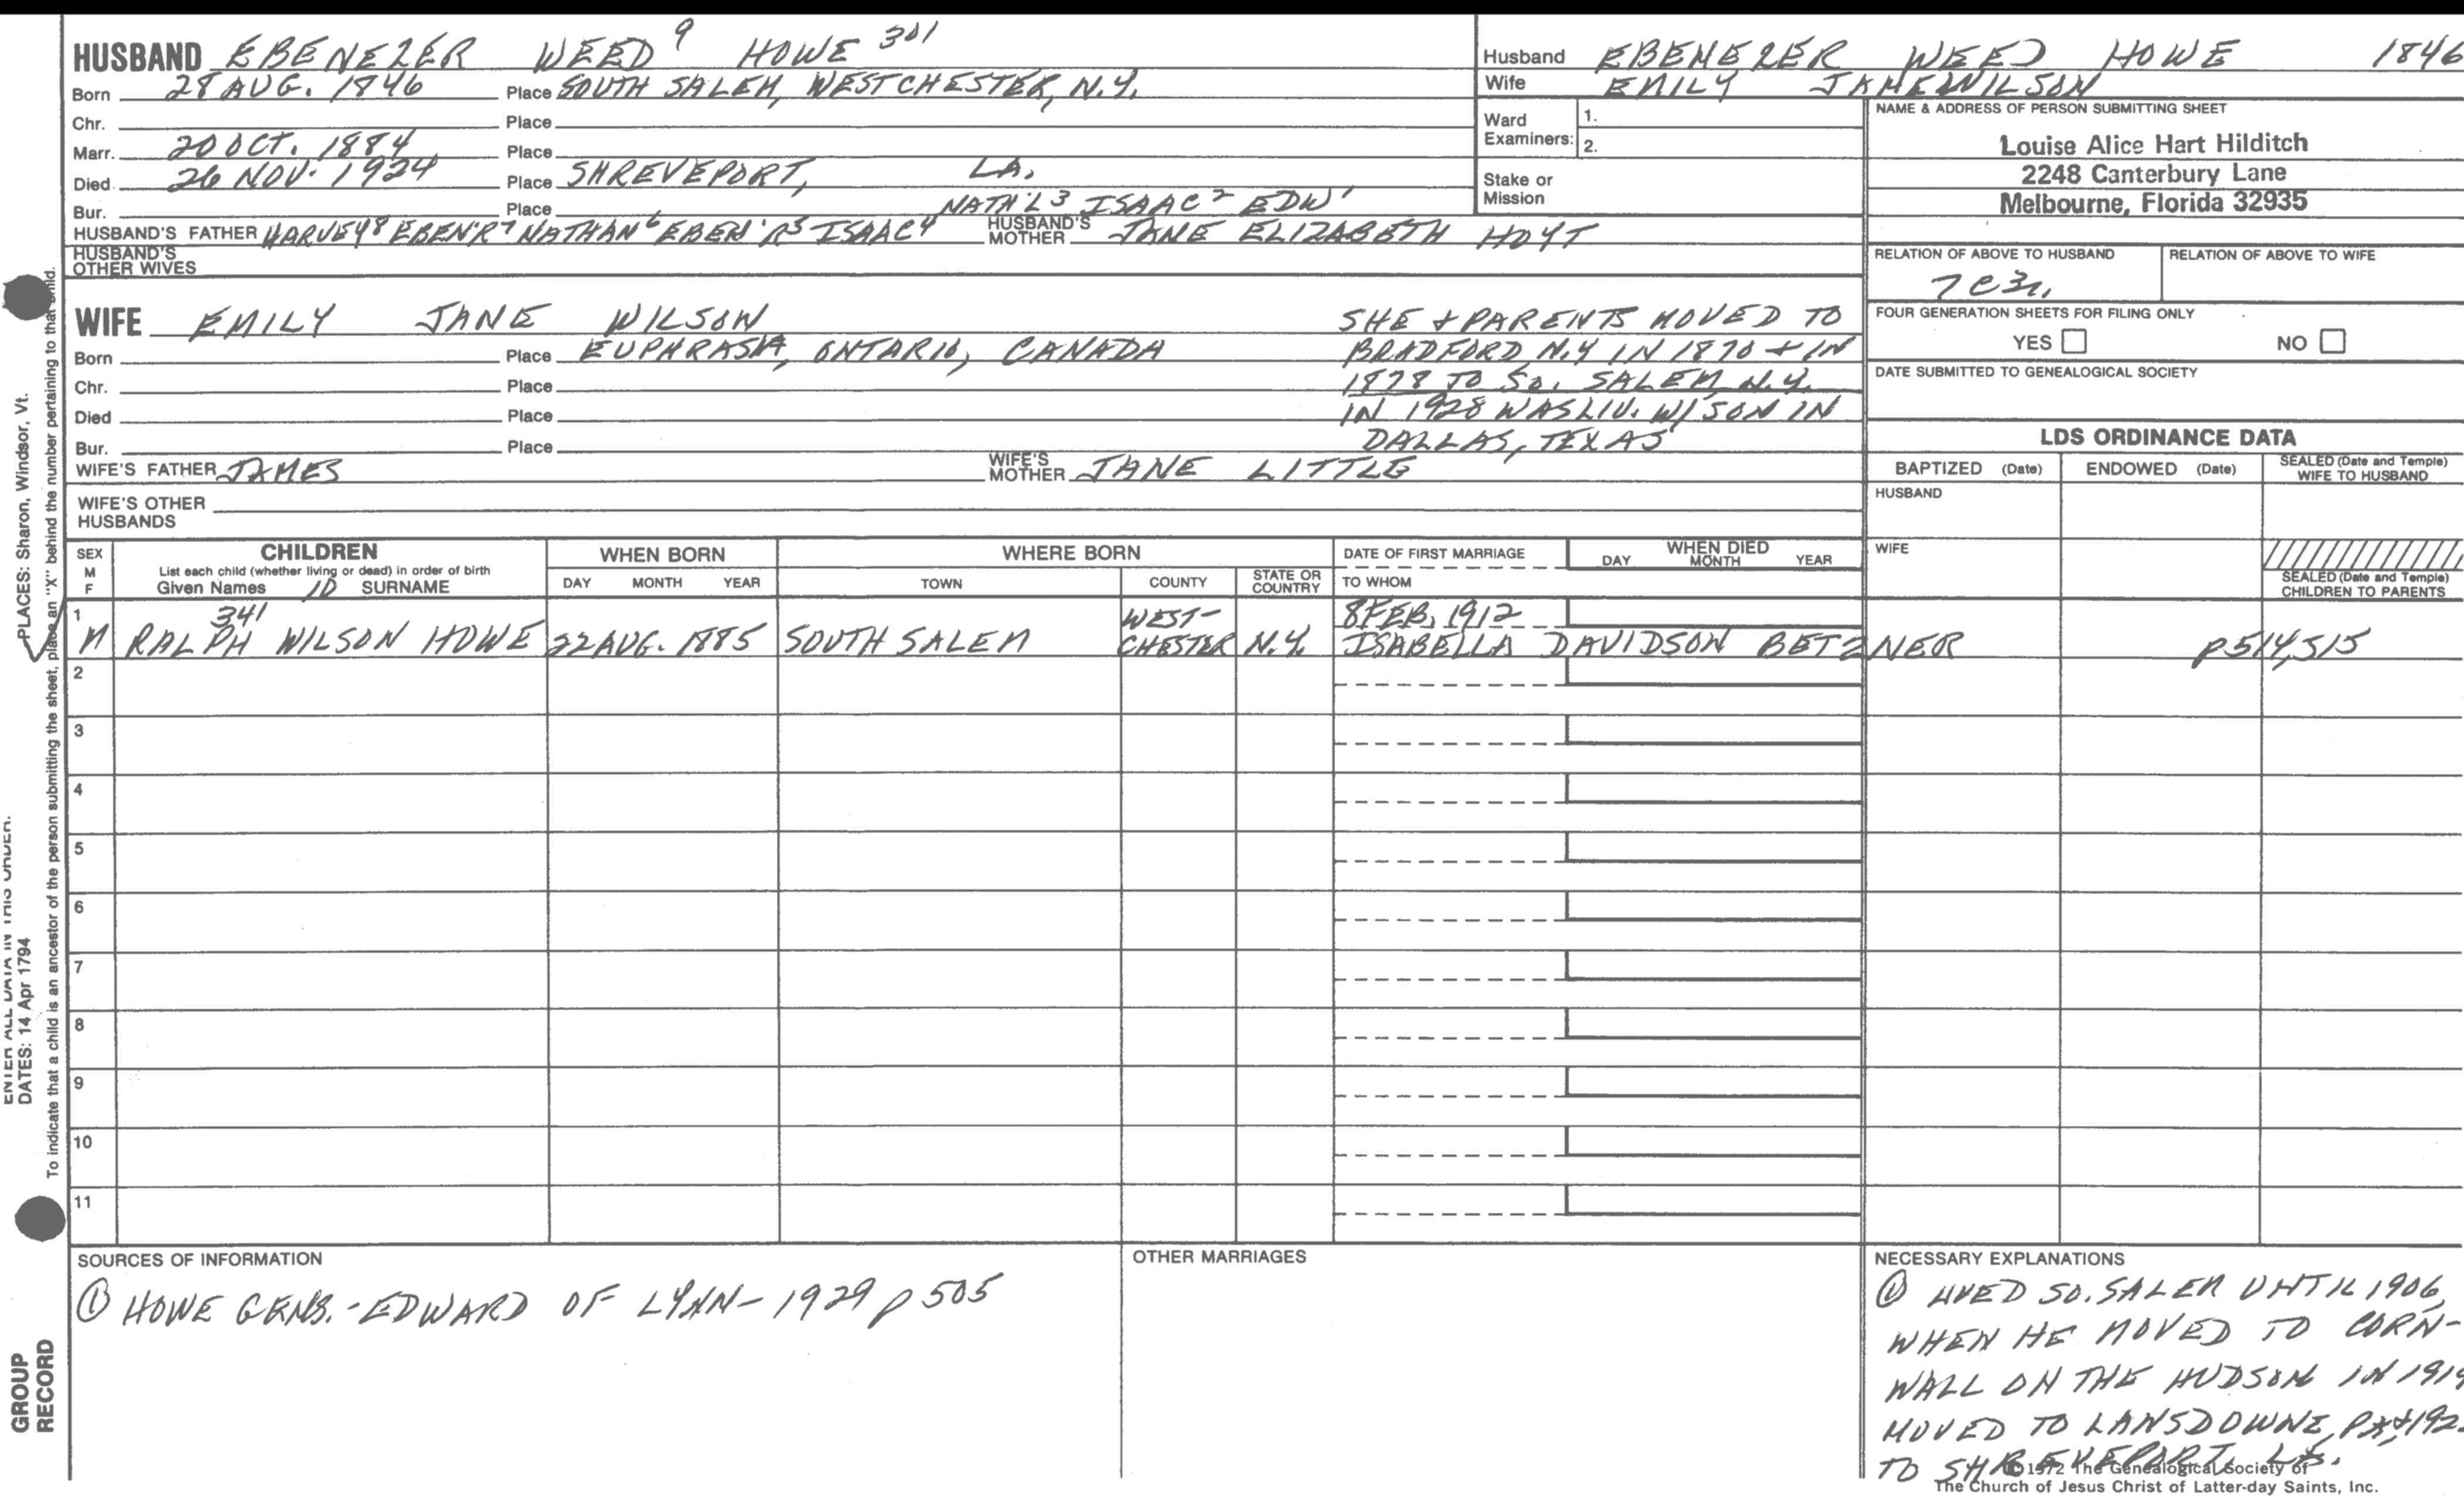 HUSBAND EBENEZER WEED⁹ HOWE 301
Born 28 AUG. 1846 Place SOUTH SALEM, WESTCHESTER, N.Y.
Chr. Place
Marr. 20 OCT. 1884 Place
Died 26 NOV. 1924 Place SHREVEPORT, LA.
Bur. Place NATH'L³ ISAAC² EDW¹
HUSBAND'S FATHER HARVEY⁸ EBEN'R⁷ NATHAN⁶ EBEN'R⁵ ISAAC⁴ HUSBAND'S MOTHER JANE ELIZABETH HOYT
HUSBAND'S OTHER WIVES
Husband EBENEZER WEED HOWE 1846
Wife EMILY JANE WILSON
Ward Examiners: 1.
2.
Stake or Mission
NAME & ADDRESS OF PERSON SUBMITTING SHEET
Louise Alice Hart Hilditch
2248 Canterbury Lane
Melbourne, Florida 32935
RELATION OF ABOVE TO HUSBAND RELATION OF ABOVE TO WIFE
7C3r.
FOUR GENERATION SHEETS FOR FILING ONLY
YES NO
DATE SUBMITTED TO GENEALOGICAL SOCIETY
WIFE EMILY JANE WILSON
Born Place EUPHRASIA, ONTARIO, CANADA
Chr. Place
Died Place
Bur. Place
SHE & PARENTS MOVED TO
BRADFORD N.Y IN 1870 & IN
1878 TO SO. SALEM N.Y.
IN 1928 WAS LIV. W/SON IN
DALLAS, TEXAS
WIFE'S FATHER JAMES WIFE'S MOTHER JANE LITTLE
WIFE'S OTHER HUSBANDS
LDS ORDINANCE DATA
BAPTIZED (Date) ENDOWED (Date) SEALED (Date and Temple) WIFE TO HUSBAND
HUSBAND
WIFE
SEALED (Date and Temple) CHILDREN TO PARENTS
SEX M F
CHILDREN
List each child (whether living or dead) in order of birth
Given Names 10 SURNAME
WHEN BORN
DAY MONTH YEAR
WHERE BORN
TOWN COUNTY STATE OR COUNTRY
DATE OF FIRST MARRIAGE
TO WHOM
WHEN DIED
DAY MONTH YEAR
1 341 WEST- 8 FEB, 1912
M RALPH WILSON HOWE 22 AUG. 1885 SOUTH SALEM CHESTER N.Y. ISABELLA DAVIDSON BETZNER p514,515
2
3
4
5
6
7
8
9
10
11
SOURCES OF INFORMATION
① HOWE GENS. - EDWARD OF LYNN - 1929 p 505
OTHER MARRIAGES
NECESSARY EXPLANATIONS
① LIVED SO. SALEM UNTIL 1906,
WHEN HE MOVED TO CORN-
WALL ON THE HUDSON IN
MOVED TO LANSDOWNE, PA &
TO SHREVEPORT, LA.
© 1972 The Genealogical Society of
The Church of Jesus Christ of Latter-day Saints, Inc.
PLACES: Sharon, Windsor, Vt.
ENTER ALL DATA IN THIS ORDER.
DATES: 14 Apr 1794
To indicate that a child is an ancestor of the person submitting the sheet, place an "X" behind the number pertaining to that child.
GROUP
RECORD